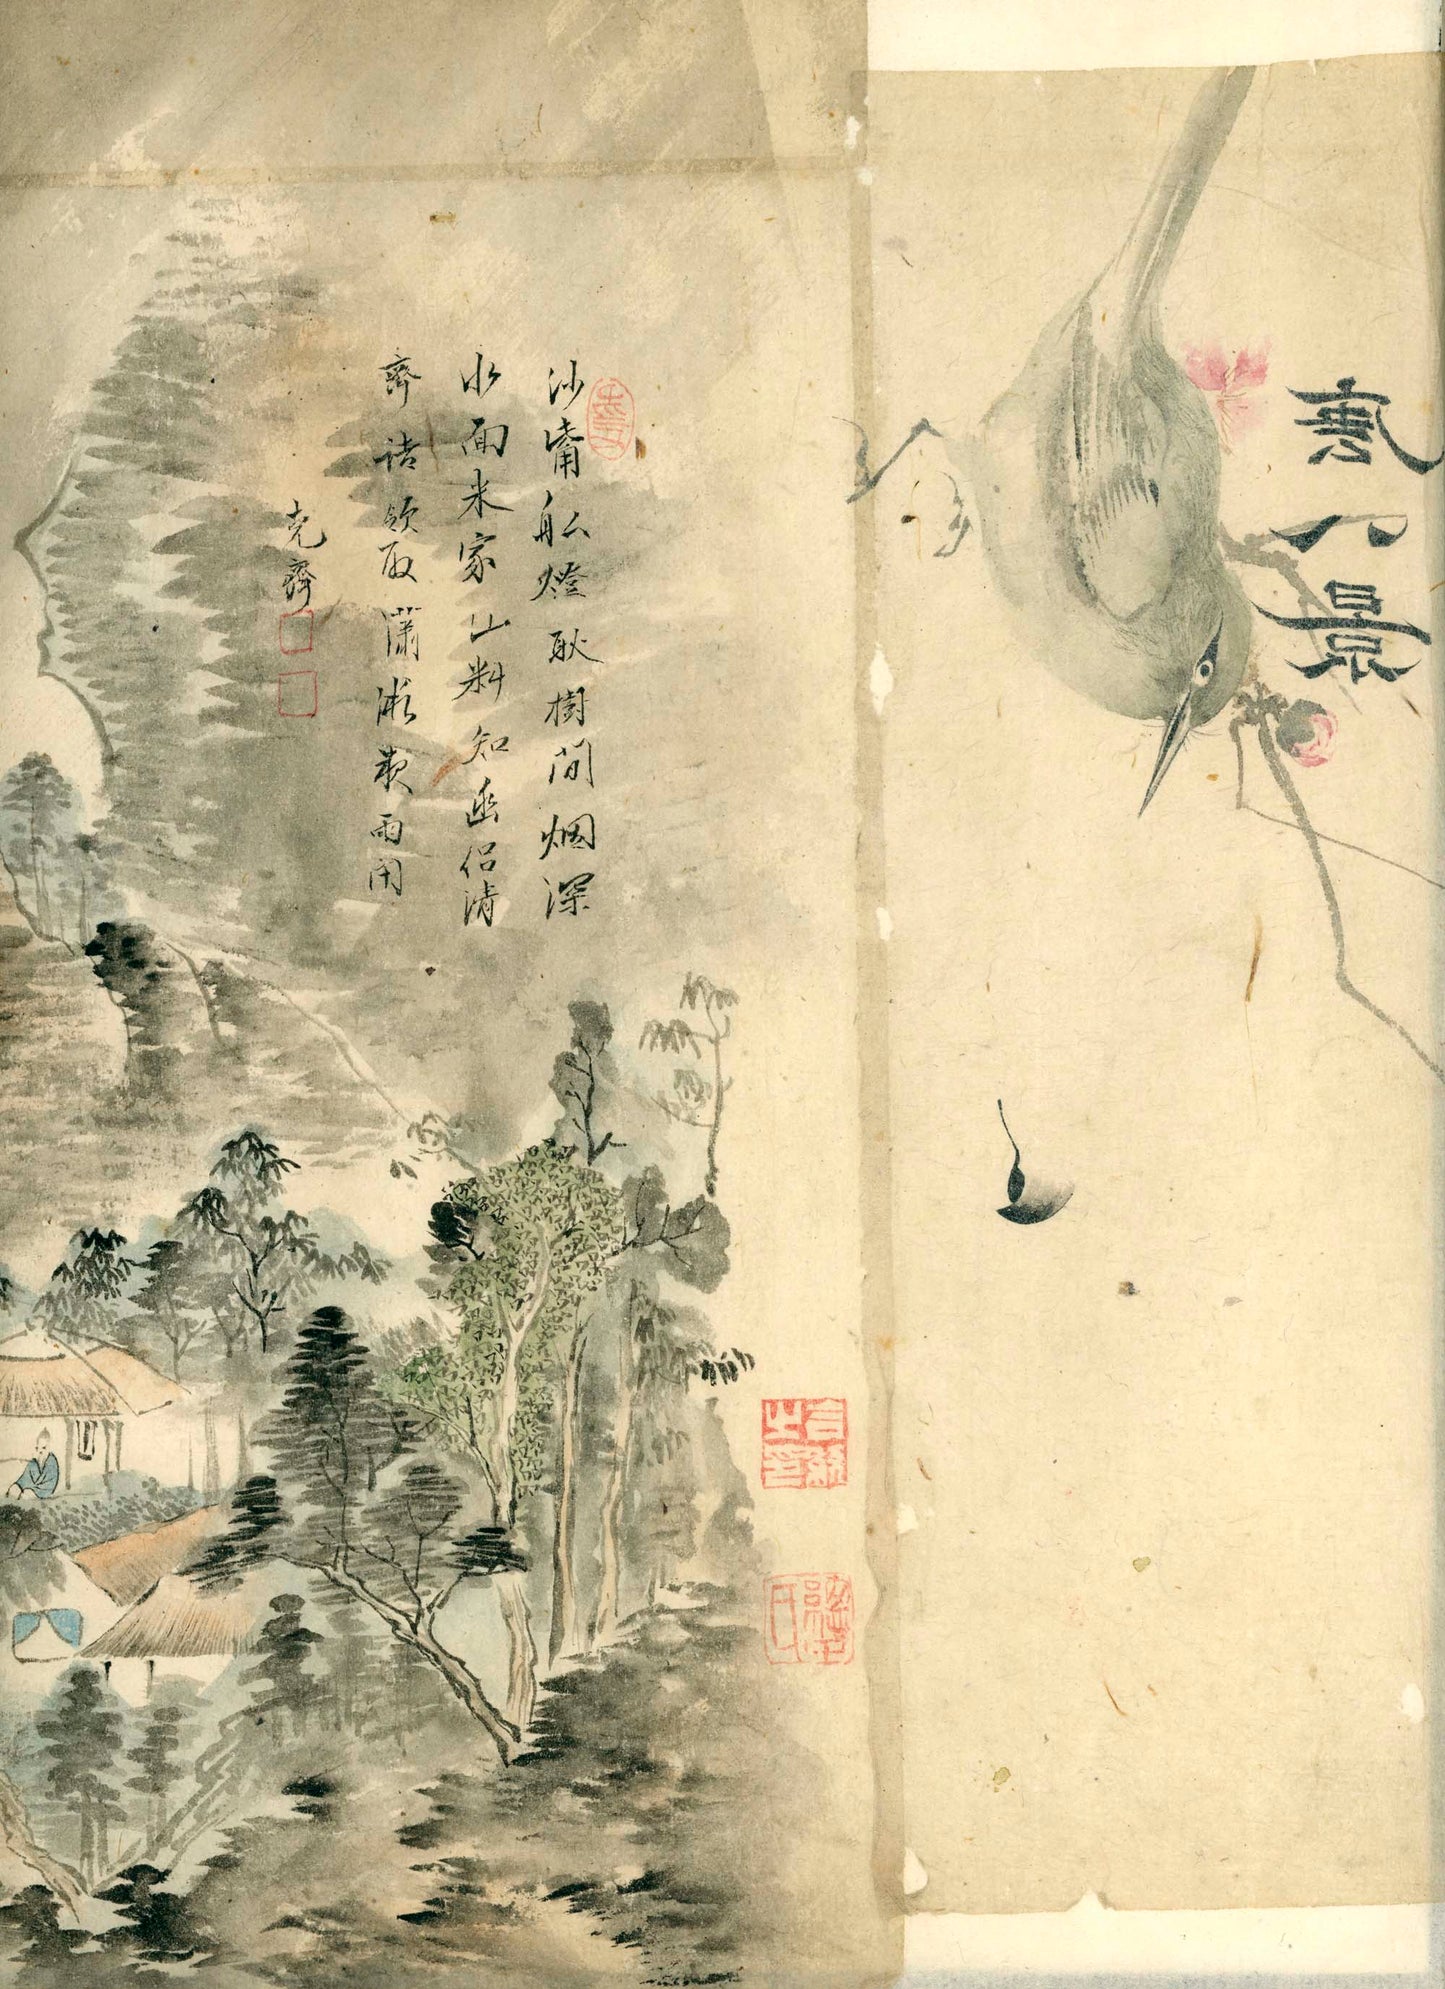 八景
沙嘴舩燈耿樹間烟深
水面米家山料知幽侣清
齋話領取瀟湘夜雨閑
克齋